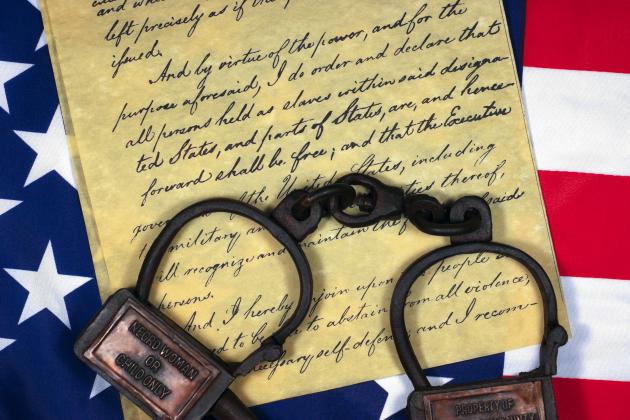 and wh
left precisely as if
issued.
And by virtue of the power, and for the
purpose aforesaid, I do order and declare that
all persons held as slaves within said designa-
ted States, and parts of States, are, and hence-
forward shall be free; and that the Executive
of the United States, including
military and ties thereof,
ill recognize and maintain the said
persons.
And I hereby join upon the people
to abstain from all violence,
necessary self-defen and I recom-
NEGRO WOMAN
OR
CHILD ONLY
PROPERTY OF
COUNTY